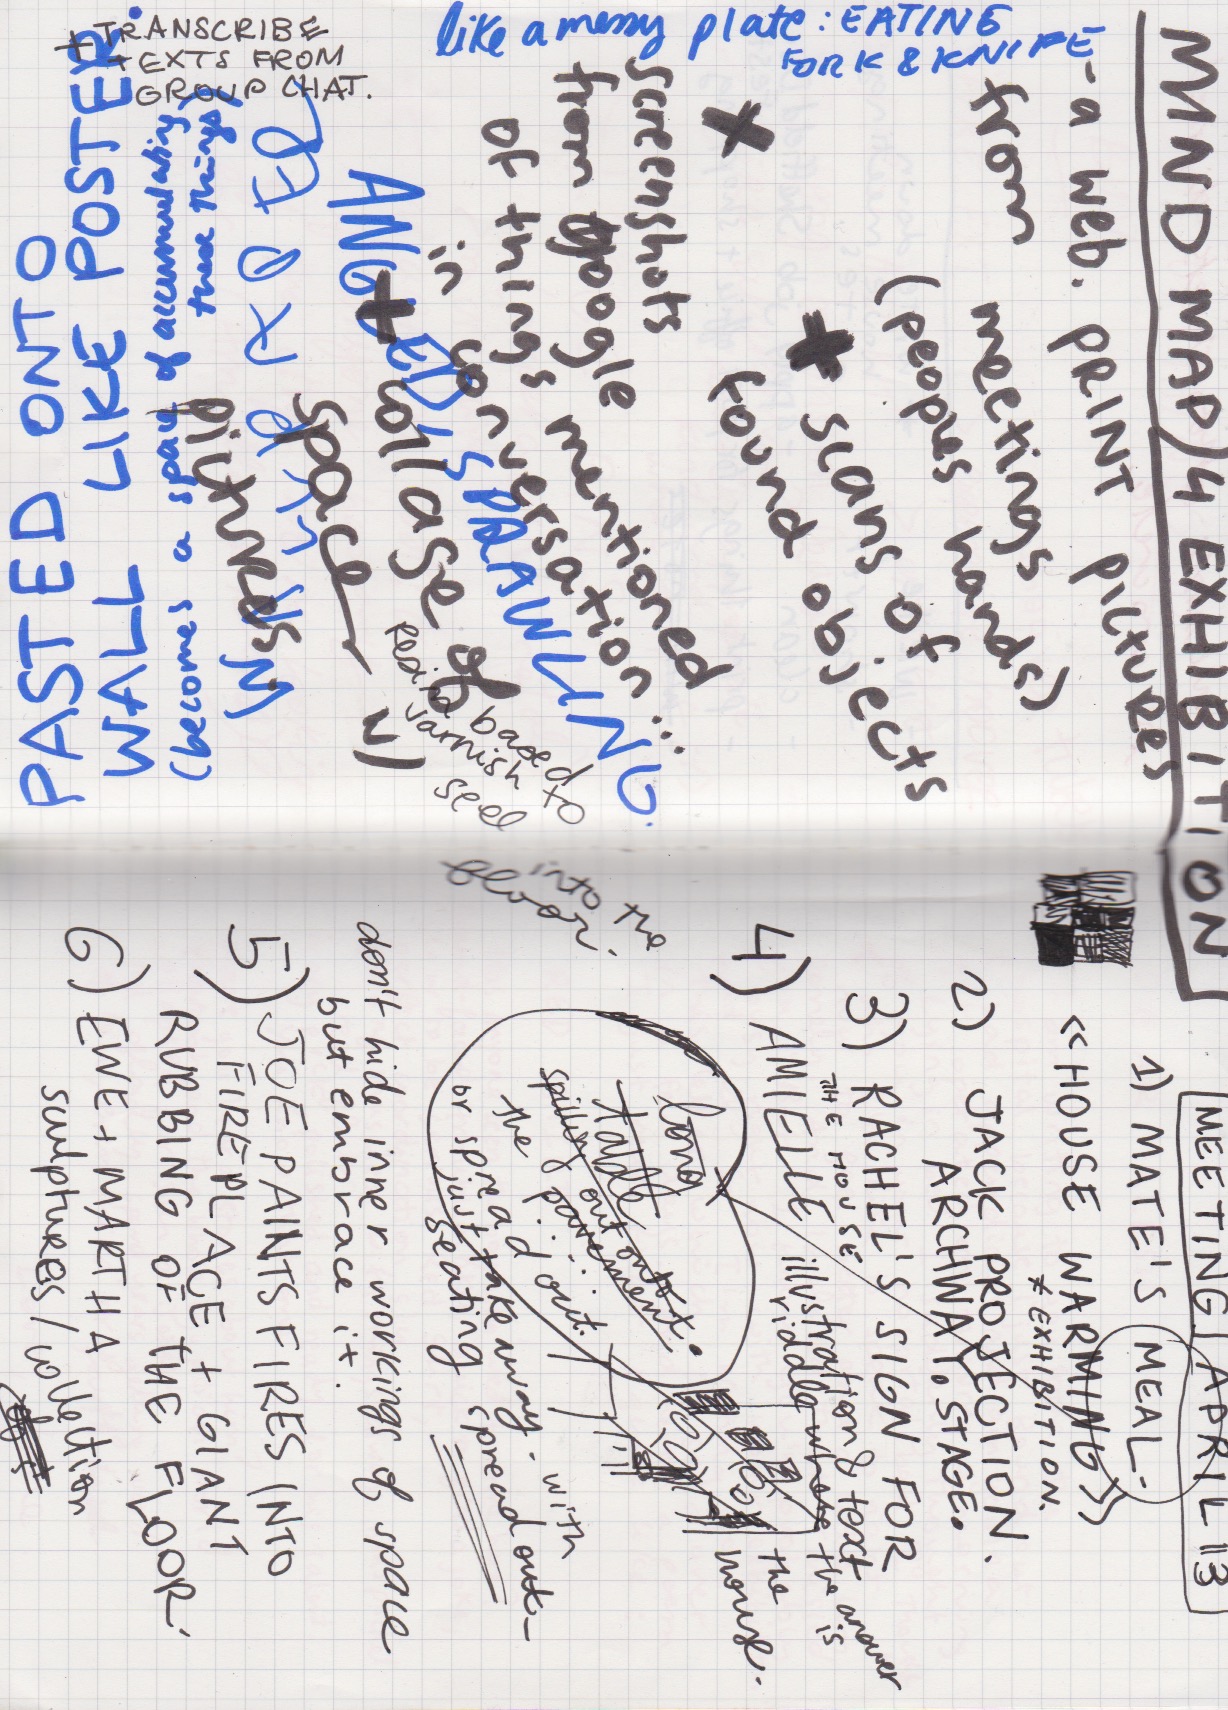 MIND MAP / 4 EXHIBITION
- a web. PRINT PICTURES
from meetings
(peoples hands)
+ scans of
found objects
+
screenshots
from google
of things mentioned
in conversation...
+ collage of
space
pictures
like a messy plate: EATING
FORK & KNIFE
SPRAWLING.
+ TRANSCRIBE
TEXTS FROM
GROUP CHAT.
PASTED ONTO
WALL LIKE POSTER
(becomes a space of accumulating
these things)
based to
varnish
seed
into the
floor.
MEETING APRIL 13
1) MATE'S MEAL -
<<HOUSE WARMING>>
* EXHIBITION.
2) JACK PROJECTION.
ARCHWAY. STAGE.
3) RACHEL'S SIGN FOR
THE HOUSE
4) AMIELLE illustration & text
riddle where the answer is
the house.
long
table
spilling out onto
the pavement.
or spread out.
just take away - with
seating spread out -
don't hide inner workings of space
but embrace it.
5) JOE PAINTS FIRES INTO
FIREPLACE + GIANT
RUBBING OF THE FLOOR.
6) EWE + MARTHA
sculptures / collection